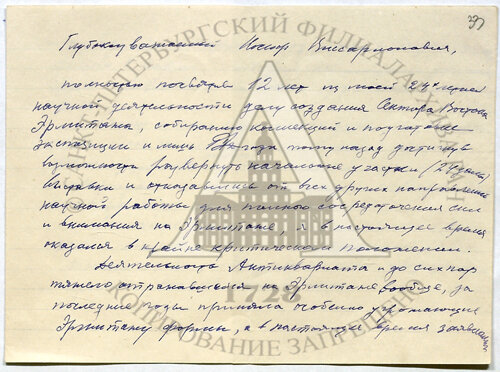 397
Глубокоуважаемый Иосиф Виссарионович,
полностью посвятив 12 лет из моей 24х летней
научной деятельности делу создания Сектора Востока
Эрмитажа, собиранию коллекций и подготовке
экспозиции и лишь года тому назад достигнув
возможности развернуть начальные участки
выставки и отказавшись от всех других направлений
научной работы для полного сосредоточения сил
и внимания на Эрмитаже, я в настоящее время
оказался в крайне критическом положении.
Деятельность Антиквариата и до сих пор
тяжело отражавшаяся на Эрмитаже вообще, за
последние годы приняла особенно угрожающие
Эрмитажу формы, а в настоящее время
САНКТ-ПЕТЕРБУРГСКИЙ ФИЛИАЛ АРХИВА
1728
КОПИРОВАНИЕ ЗАПРЕЩЕНО